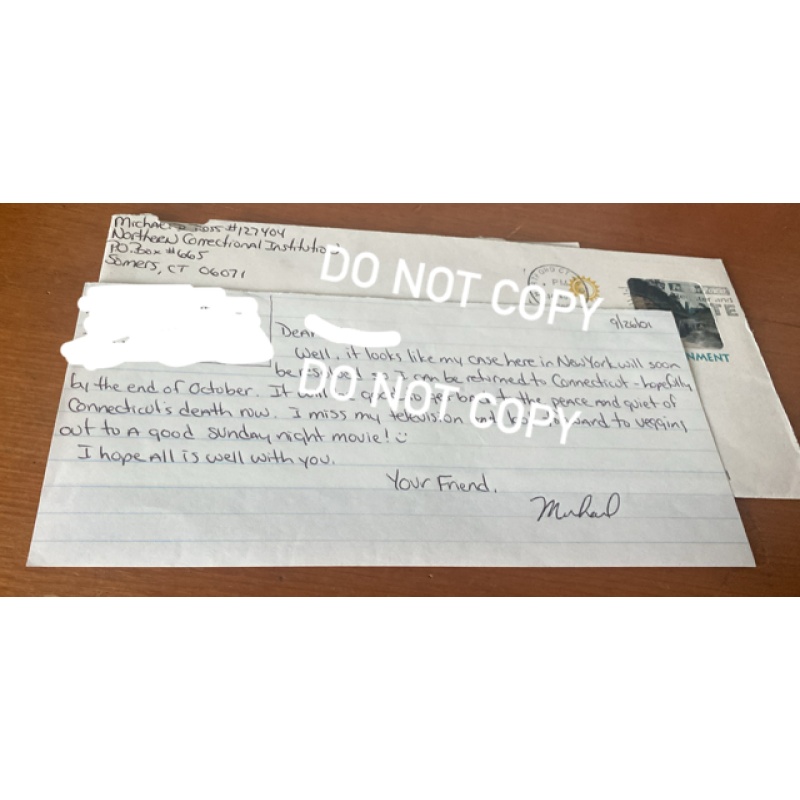 Michael Ross #127404
Northern Correctional Institution
P.O. Box #665
Somers, CT 06071
DO NOT COPY
9/26/01
Dear
Well, it looks like my case here in New York will soon
be resolved so I can be returned to Connecticut - hopefully
by the end of October. It will be good to get back to the peace and quiet of
Connecticut's death row. I miss my television and look forward to vegging
out to a good sunday night movie!
I hope all is well with you.
Your Friend,
Michael
DO NOT COPY